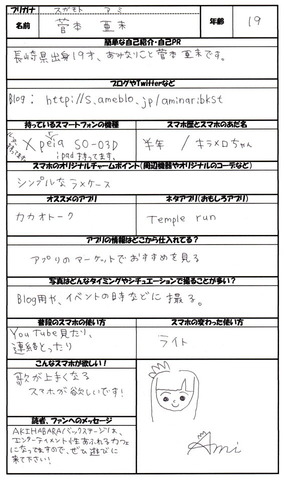 フリガナ スガモト アミ
名前 菅本 亜未 年齢 19
簡単な自己紹介・自己PR
長崎県出身19才、あみなりこと菅本亜未です。
ブログやTwitterなど
Blog: http://s.ameblo.jp/aminaribkst
持っているスマートフォンの機種 スマホ歴とスマホのあだ名
Xperia SO-03D 半年 / キラメロちゃん
ipad持ってます。
スマホのオリジナルチャームポイント(周辺機器やオリジナルのコーデなど)
シンプルなラメケース
オススメのアプリ ネタアプリ(おもしろアプリ)
カカオトーク Temple run
アプリの情報はどこから仕入れてる?
アプリのマーケットでおすすめを見る
写真はどんなタイミングやシチュエーションで撮ることが多い?
Blog用や、イベントの日などに撮る。
普段のスマホの使い方 スマホの変わった使い方
YouTube見たり、
連絡とったり
ライト
こんなスマホが欲しい!
歌が上手くなる
スマホが欲しいです!
読者、ファンへのメッセージ
AKIHABARAバックステージは、
エンターテイメント性あふれるカフェ
になってますので、ぜひ遊びに
来て下さい!
Ami